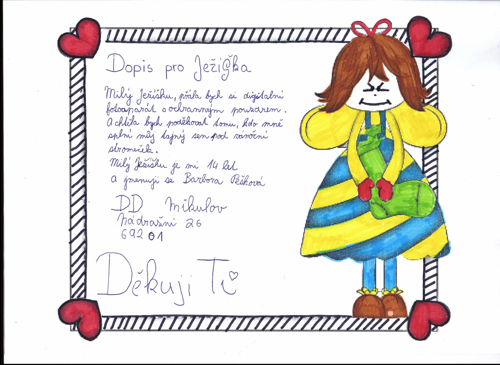 Dopis pro Ježíška
Milý Ježíšku, přála bych si digitální
fotoaparát s ochranným pouzdrem.
A chtěla bych poděkovat tomu, kdo mně
splní můj tajný sen pod vánoční
stromeček.
Milý Ježíšku je mi 14 let
a jmenuji se Barbora Pešková
DD Mikulov
Nádražní 26
692 01
Děkuji Ti